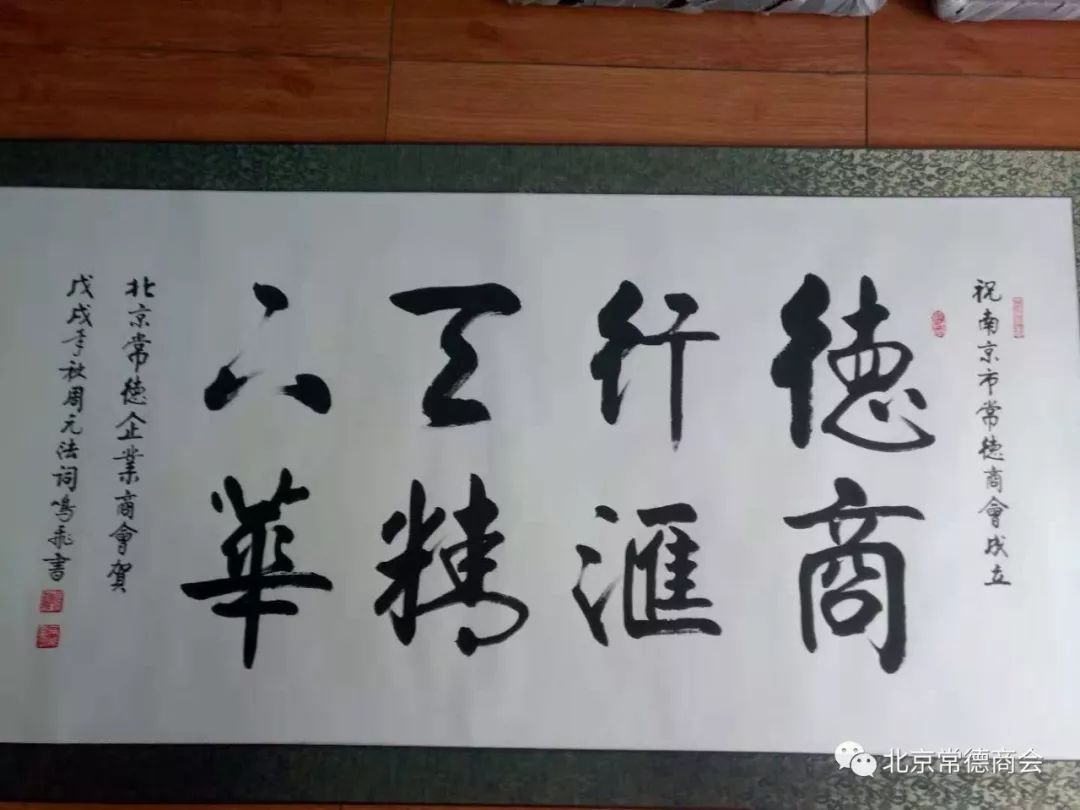 祝南京市常德商會成立
德行天下
商滙精華
北京常德企業商會賀
戊戌年秋周元法词鳴飛書
北京常德商会